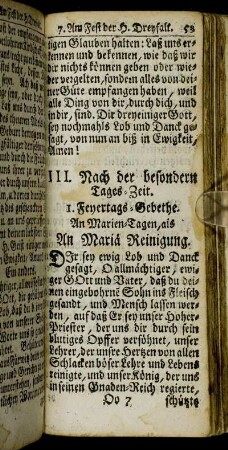 7. Am Fest der H. Dreyfalt. 53
tigen Glauben halten: Laß uns er-
kennen und bekennen, wie daß wir
dir nichts können geben oder wie-
der vergelten, sondern alles von dei-
ner Güte empfangen haben, weil
alle Ding von dir, durch dich, und
in dir, sind. Dir dreyeiniger Gott,
sey nochmahls Lob und Danck ge-
sagt, von nun an biß in Ewigkeit,
Amen!
III. Nach der besondern
Tages-Zeit.
1. Feyertags-Gebethe.
An Marien-Tagen, als
An Mariä Reinigung.
DIr sey ewig Lob und Danck
gesagt, O allmächtiger, ewi-
ger GOtt und Vater, daß du dei-
nen eingebohrnē Sohn ins Fleisch
gesandt, und Mensch lassen wer-
den, auf daß Er sey unser Hoher-
Priester, der uns dir durch sein
blutiges Opffer versöhnet, unser
Lehrer, der unsre Hertzen von allen
Schlacken böser Lehre und Lebens
reinigte, und unser König, der uns
in seinen Gnaden-Reich regierte,
Oo 7 schützte